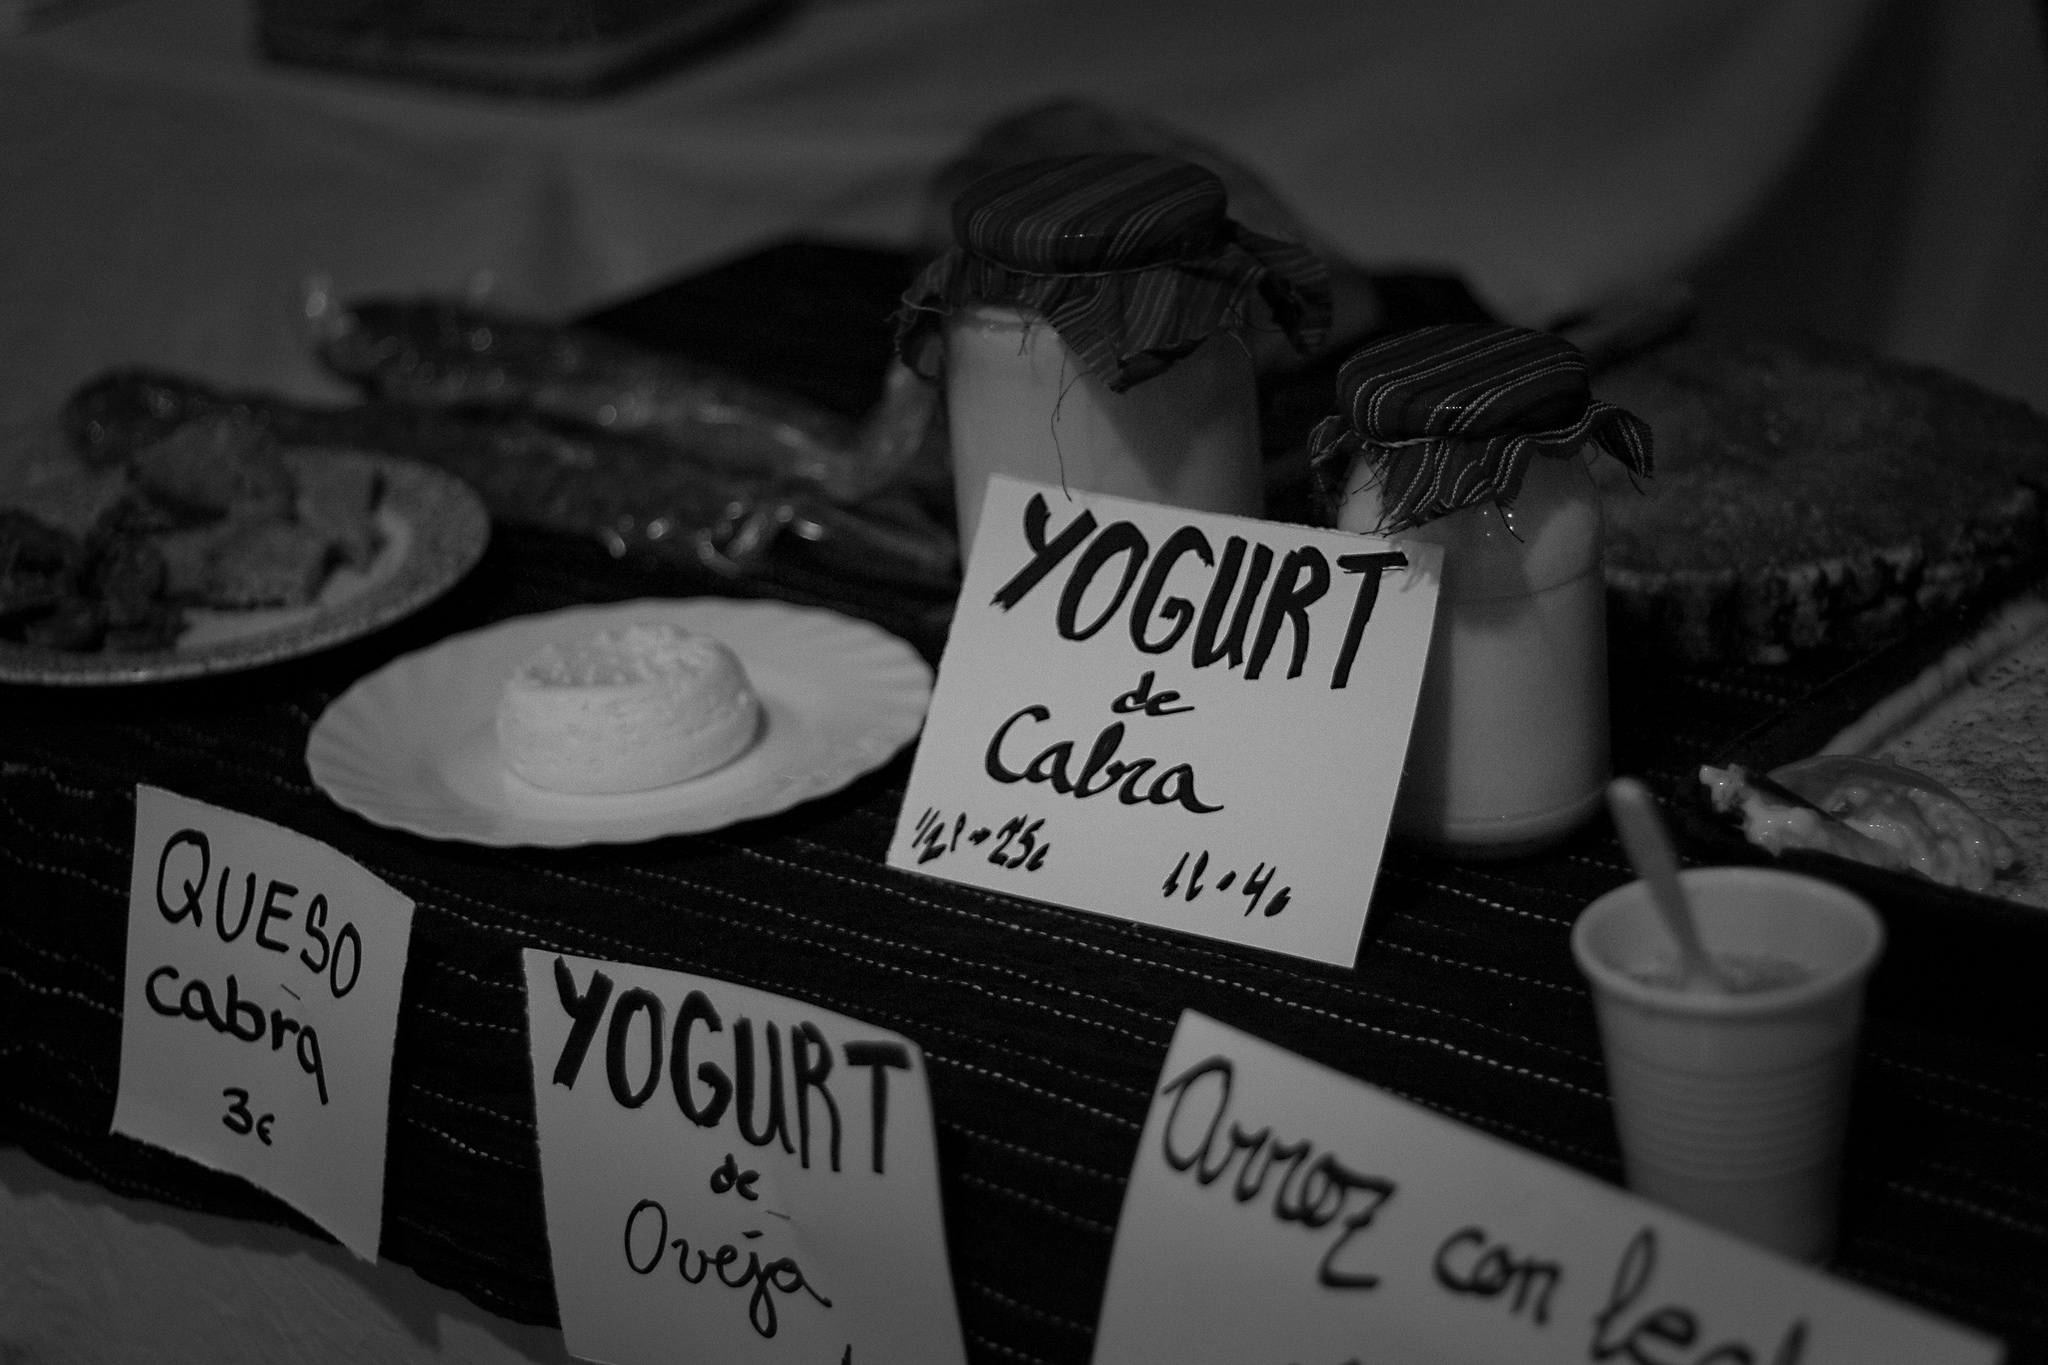 YOGURT
de
Cabra
1/2 l → 2'5€
1l → 4€
QUESO
cabra
3€
YOGURT
de
Oveja
Arroz con